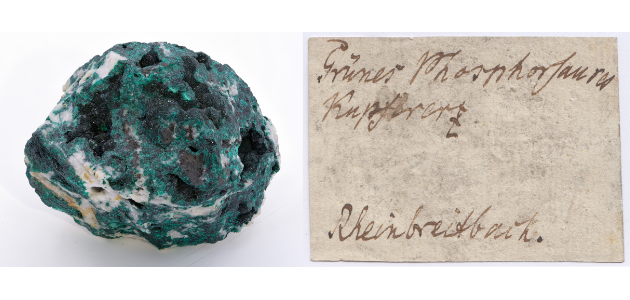 Grünes Phosphorsaures
Kupfererz.
Rheinbreitbach.